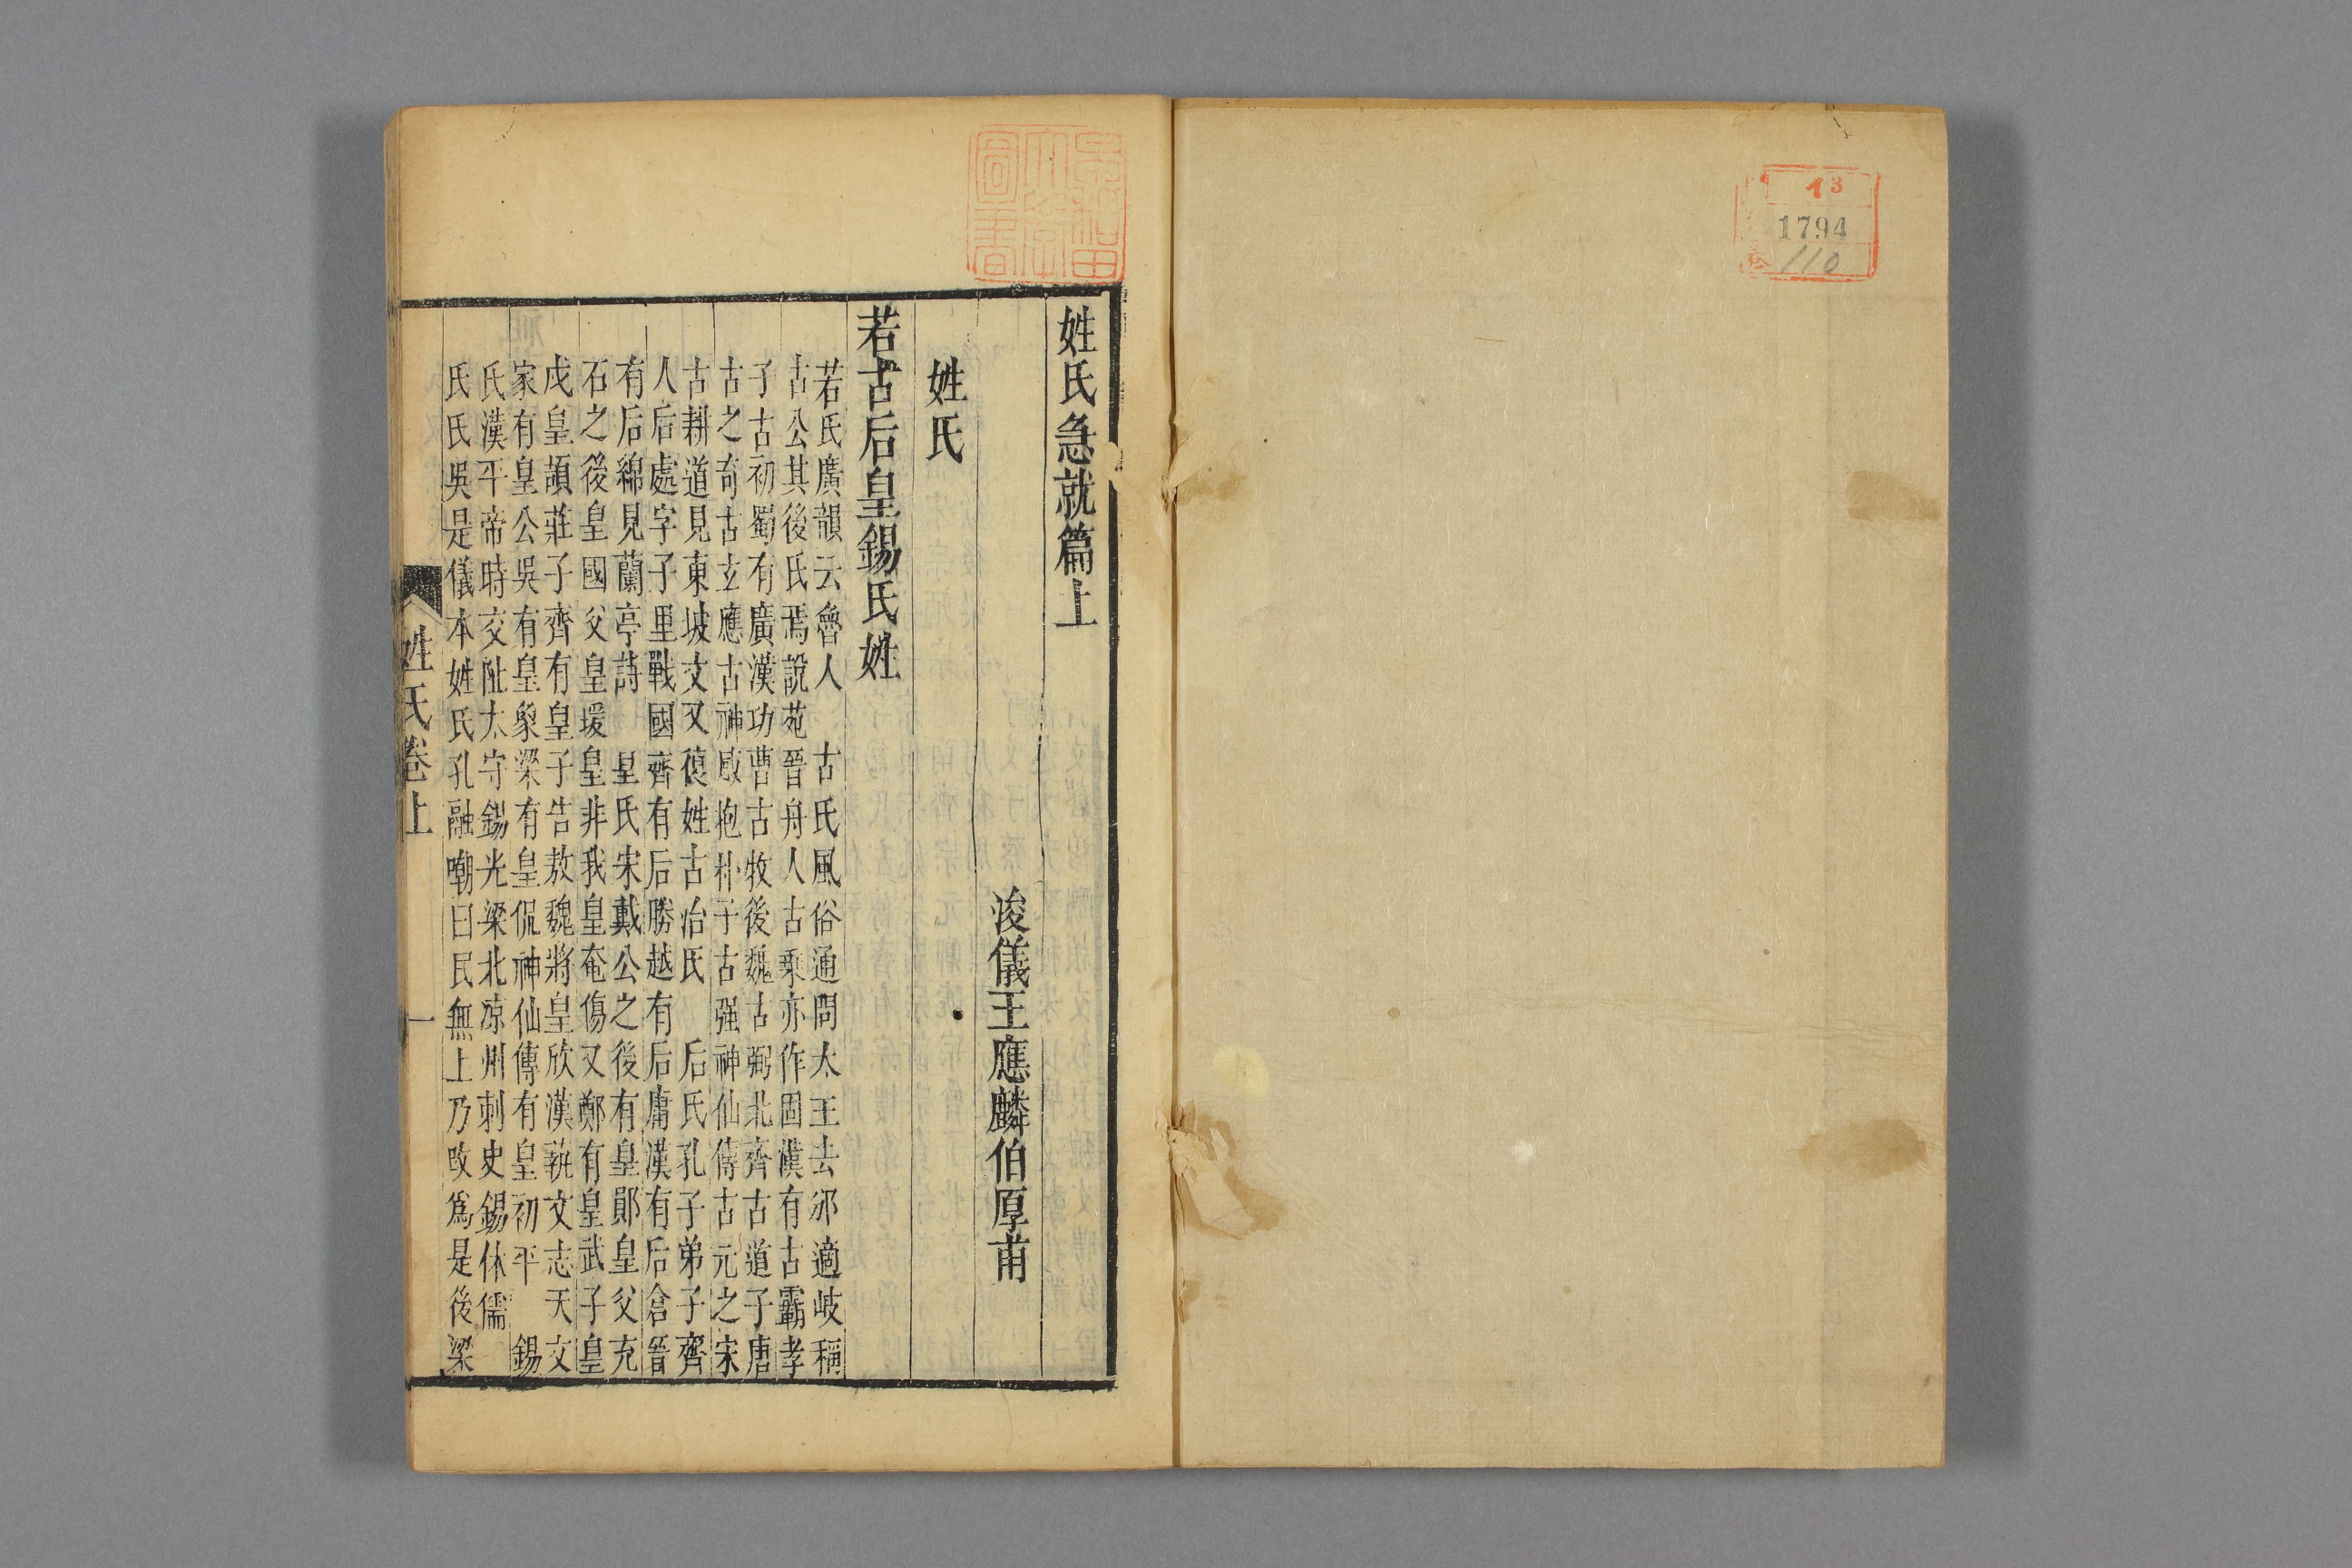 13
1794
110
早稲田大學圖書
姓氏急就篇上
浚儀王應麟伯厚甫
姓氏
若古后皇錫氏姓
若氏廣韻云魯人　古氏風俗通問太王去邠適岐稱
古公其後氏焉說苑晉舟人古乘亦作固漢有古霸孝
子古初蜀有廣漢功曹古牧後魏古弼北齊古道子唐
古之奇古玄應古神感抱朴子古強神仙傳古元之宋
古耕道見東坡文又復姓古冶氏　后氏孔子弟子齊
人后處字子里戰國齊有后勝越有后庸漢有后倉晉
有后綿見蘭亭詩　皇氏宋戴公之後有皇鄖皇父充
石之後皇國父皇瑗皇非我皇奄傷又鄭有皇武子皇
戌皇頡莊子齊有皇子告敖魏將皇欣漢藝文志天文
家有皇公吳有皇象梁有皇侃神仙傳有皇初平　錫
氏漢平帝時交阯太守錫光梁北凉州刺史錫休儒
氏氏吳是儀本姓氏孔融嘲曰民無上乃改爲是後梁
姓氏卷上
一